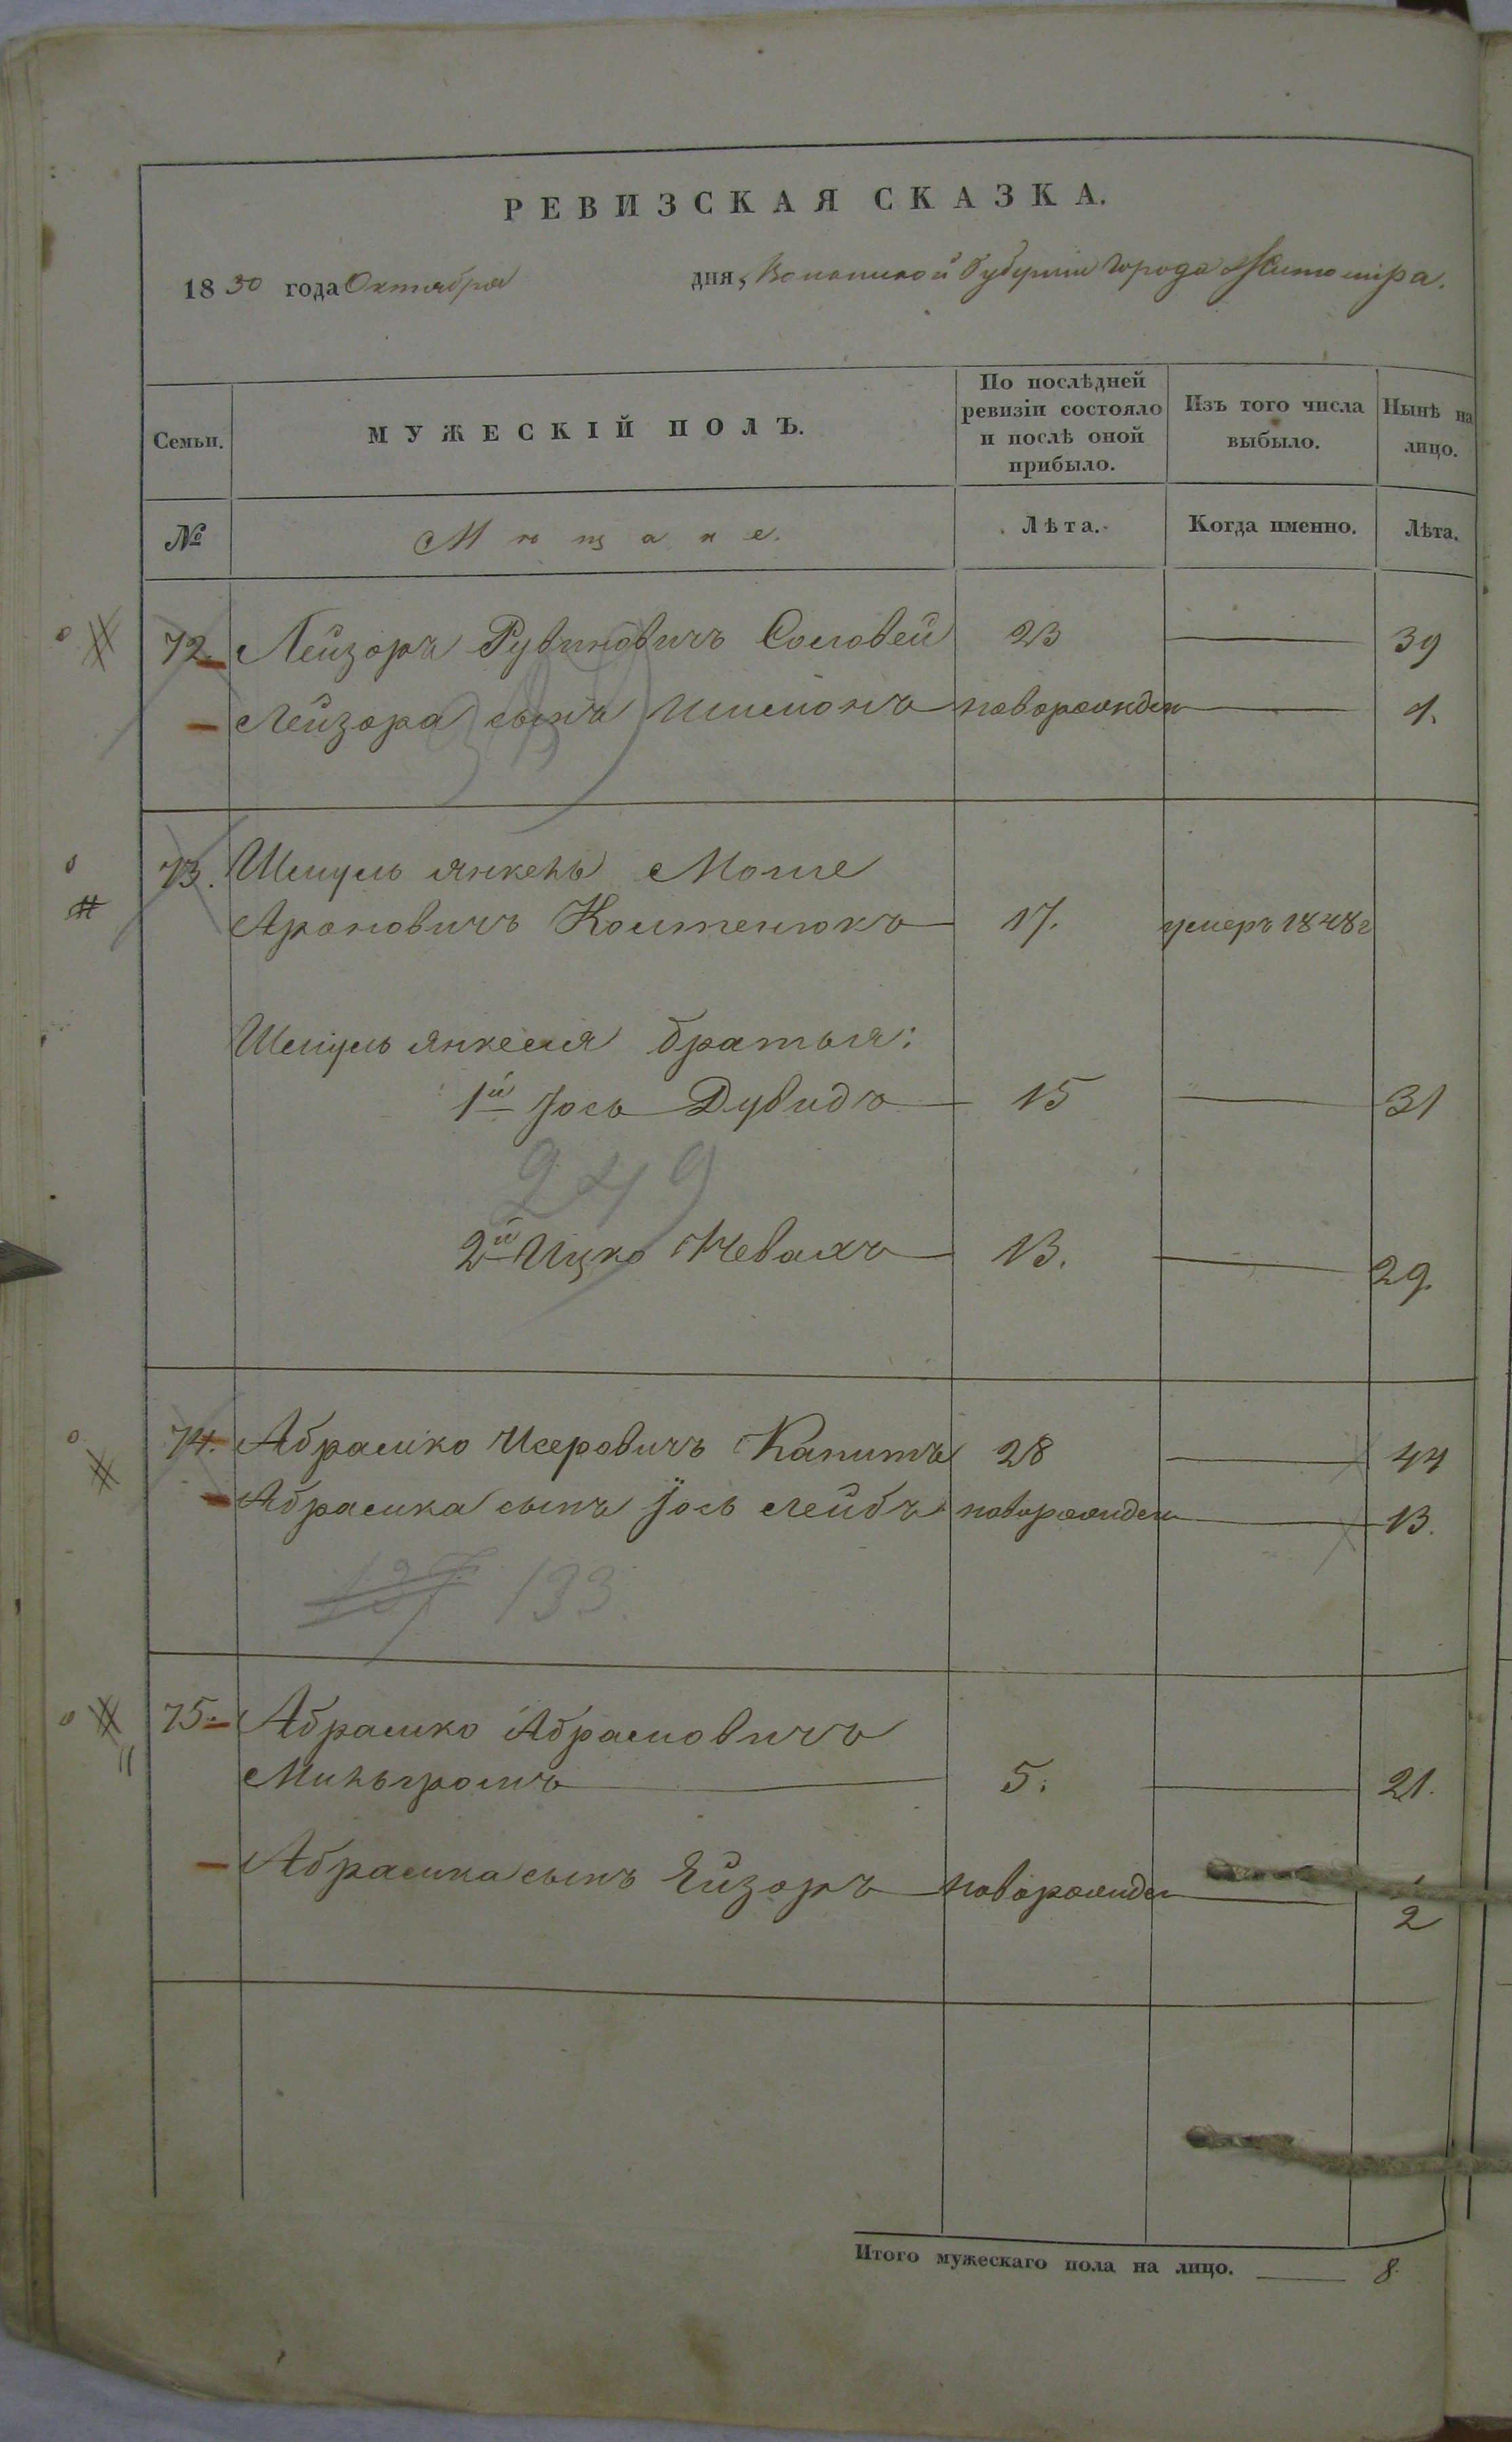 РЕВИЗСКАЯ СКАЗКА.
1830 года Октября дня, Волынской Губерніи города Житомира.
Семьи. МУЖЕСКІЙ ПОЛЪ. По послѣдней ревизіи состояло и послѣ оной прибыло. Изъ того числа выбыло. Нынѣ на лицо.
№ Мѣщане. Лѣта. Когда именно. Лѣта.
72. Лейзоръ Рувиновичъ Соловей 23 39
Лейзора сынъ Шимонъ новорожден 1.
73. Шмуль Янкель Моше
Ароновичъ Костенюкъ 17. умеръ 1848 г
Шмуль Янкеля братья:
1й Іось Дувидъ 15 31
249
2й Ицко Невахъ 13. 29.
74. Абрамко Исеровичъ Капитъ 28 44
Абрамка сынъ Іось Лейбъ новорожден 13.
137 133.
75. Абрамко Абрамовичъ
Мильгромъ 5. 21.
Абрамка сынъ Ейзоръ новорожден 1/2
Итого мужескаго пола на лицо. 8.